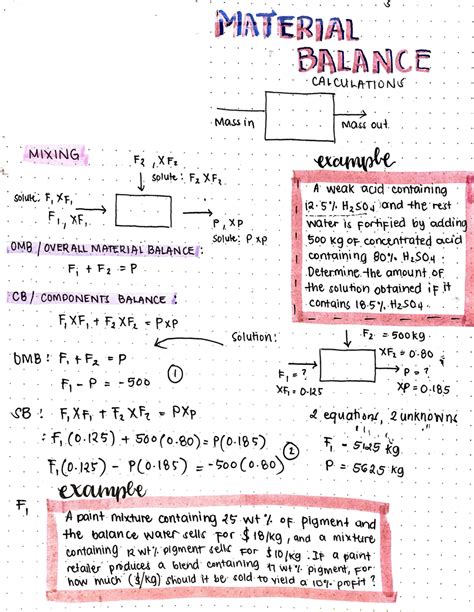 MATERIAL
BALANCE
CALCULATIONS
Mass in
Mass out
MIXING
F₂, XF₂
solute: F₂ XF₂
solute: F₁ XF₁
F₁, XF₁
P, XP
solute: P XP
OMB / OVERALL MATERIAL BALANCE:
F₁ + F₂ = P
CB / COMPONENTS BALANCE:
F₁XF₁ + F₂XF₂ = PXP
example
A weak acid containing
12.5% H₂SO₄ and the rest
water is fortified by adding
500 kg of concentrated acid
containing 80% H₂SO₄.
Determine the amount of
the solution obtained if it
contains 18.5% H₂SO₄.
solution:
F₂ = 500kg
XF₂ = 0.80
F₁ = ?
XF₁ = 0.125
P = ?
XP = 0.185
OMB: F₁ + F₂ = P
F₁ - P = -500 ①
SB: F₁XF₁ + F₂XF₂ = PXP
: F₁(0.125) + 500(0.80) = P(0.185)
F₁(0.125) - P(0.185) = -500(0.80) ②
2 equations, 2 unknowns
F₁ = 5125 kg
P = 5625 kg
example
F₁
A paint mixture containing 25 wt % of pigment and
the balance water sells for $18/kg, and a mixture
containing 12 wt% pigment sells for $10/kg. If a paint
retailer produces a blend containing 17 wt% pigment, for
how much ($/kg) should it be sold to yield a 10% profit?